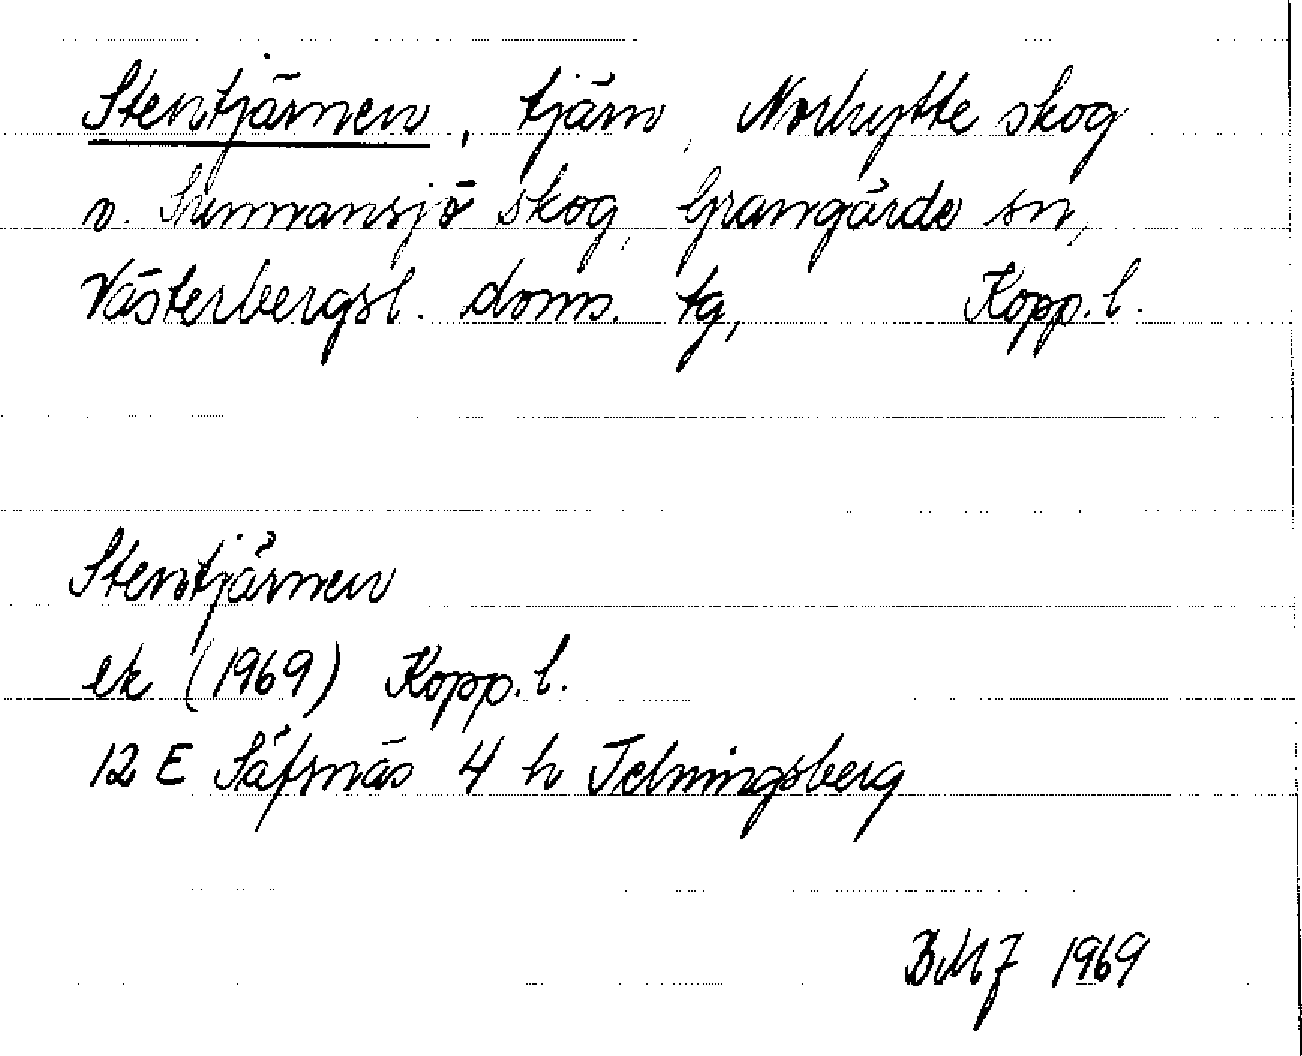 Stentjärnen, tjärn, Norhytte skog
o. Sunnansjö skog, Grangärde sn,
Västerbergsl. doms. tg, Kopp. l.
Stentjärnen
ek (1969) Kopp. l.
12 E Säfsnäs 4 h Telningsberg
BMJ 1969